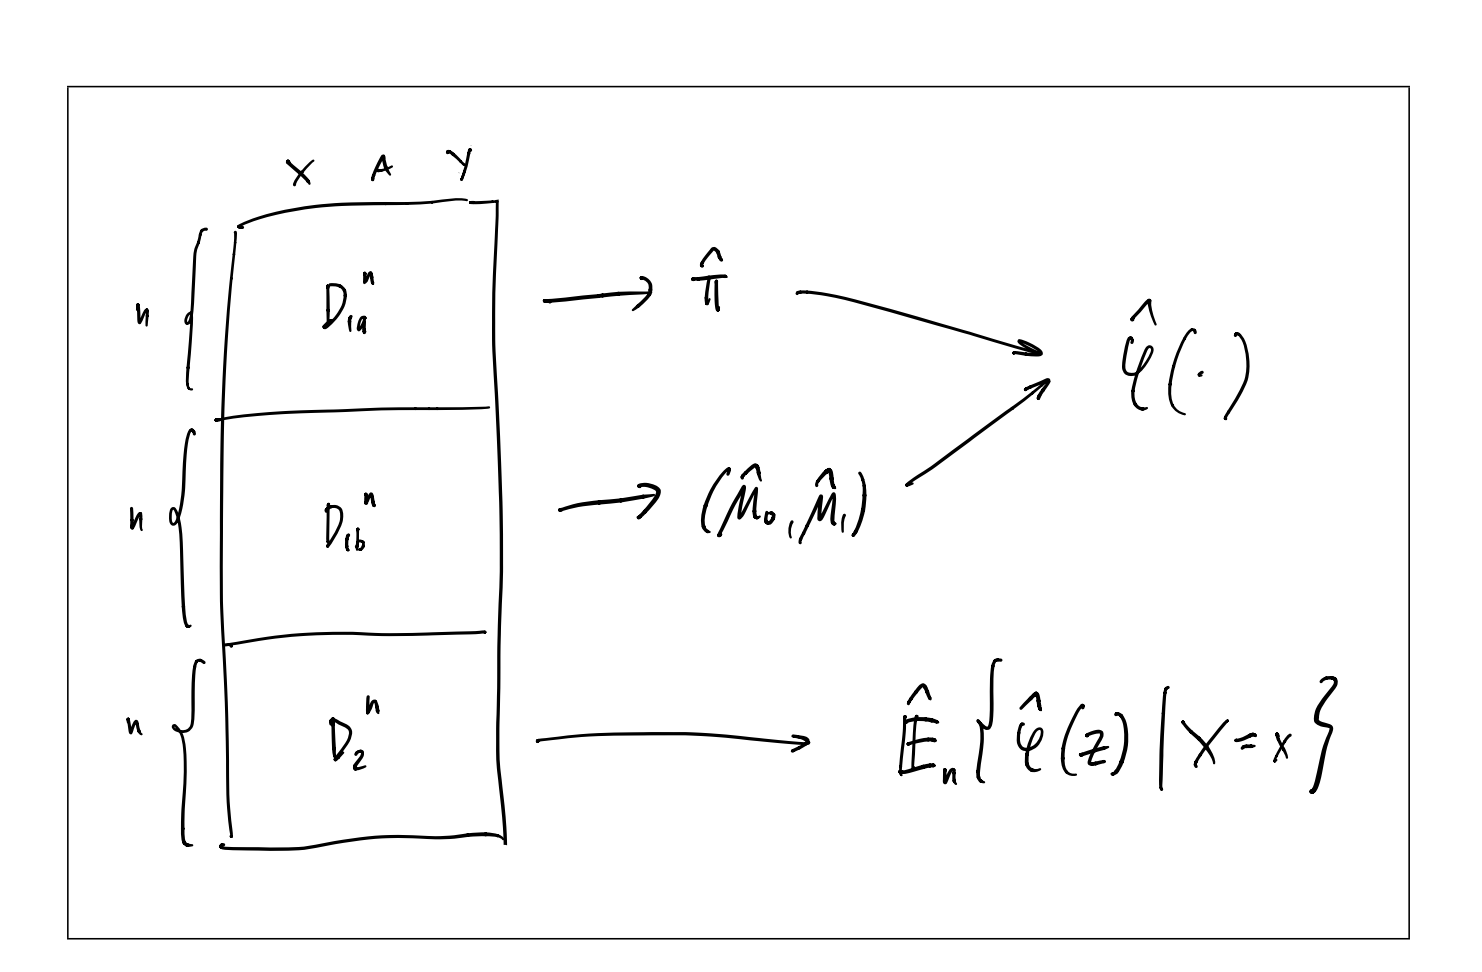 X A Y
n D₁ₐⁿ → π̂ φ̂(·)
n D₁bⁿ → (μ̂₀, μ̂₁)
n D₂ⁿ → Êₙ{φ̂(z) | X = x}